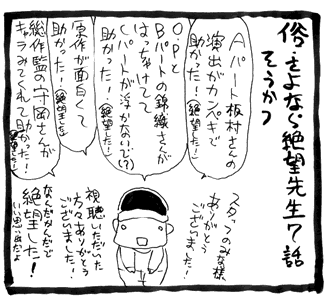 俗・さよなら絶望先生7話
そうかつ
Aパート板村さんの
演出がカンペキで
助かった!(絶望した!)
OPと
Bパートの錦織さんが
はっちゃけてて
Cパートが浮かないで(?)
助かった!(絶望した!)
原作が面白くて
助かった!(絶望した!)
総作監の守岡さんが
キャラみてくれて助かった!
(絶望した!)
スタッフのみな様
ありがとう
ございました!
視聴いただいた
方々ありがとう
ございました!
なんだかんだで
絶望した!
いい思い出だよ